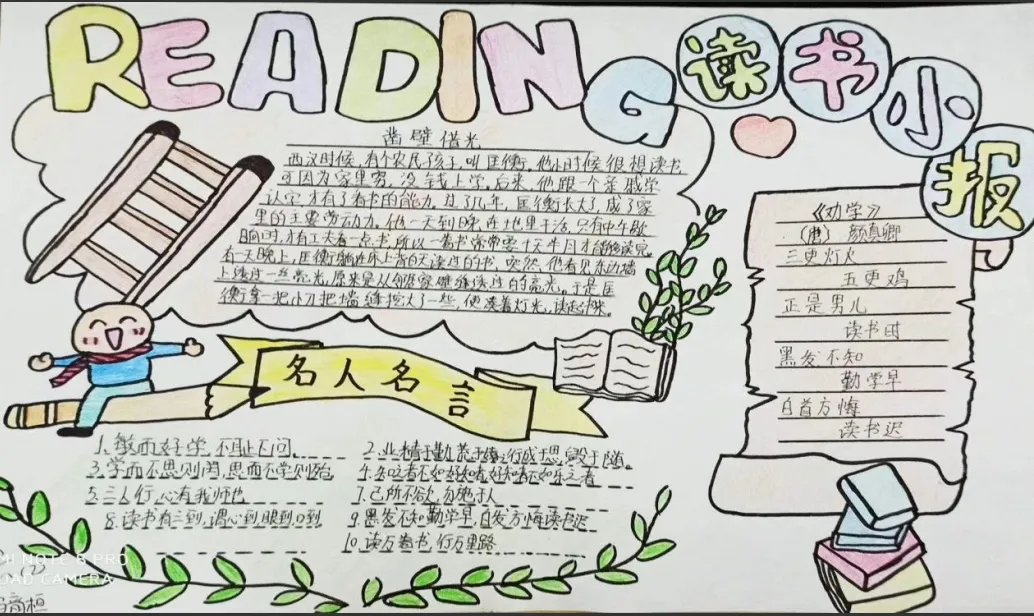 READING
读书小报
凿壁借光
西汉时候,有个农民孩子,叫匡衡,他小时候很想读书
可因为家里穷,没钱上学。后来,他跟一个亲戚学
认字,才有了看书的能力。过了几年,匡衡长大了,成了家
里的主要劳动力。他一天到晚在地里干活,只有中午歇
晌时,才有工夫看一点书,所以一卷书常常要十天半月才能够读完。
有一天晚上,匡衡躺在床上背白天读过的书,突然,他看见东边墙
上透过一丝亮光,原来是从邻居家壁缝透过的亮光。于是匡
衡拿一把小刀把墙缝挖大了一些,便凑着灯光,读起书来。
《劝学》
(唐) 颜真卿
三更灯火
五更鸡
正是男儿
读书时
黑发不知
勤学早
白首方悔
读书迟
名人名言
1. 敏而好学,不耻下问。
2. 业精于勤,荒于嬉;行成于思,毁于随。
3. 学而不思则罔,思而不学则殆
4. 知之者不如好知者,好知者不如乐之者
5. 三人行,必有我师也
7. 己所不欲,勿施于人
8. 读书有三到,谓心到,眼到,口到
9. 黑发不知勤学早,白发方悔读书迟
10. 读万卷书,行万里路
MI NOTE 8 PRO
QUAD CAMERA